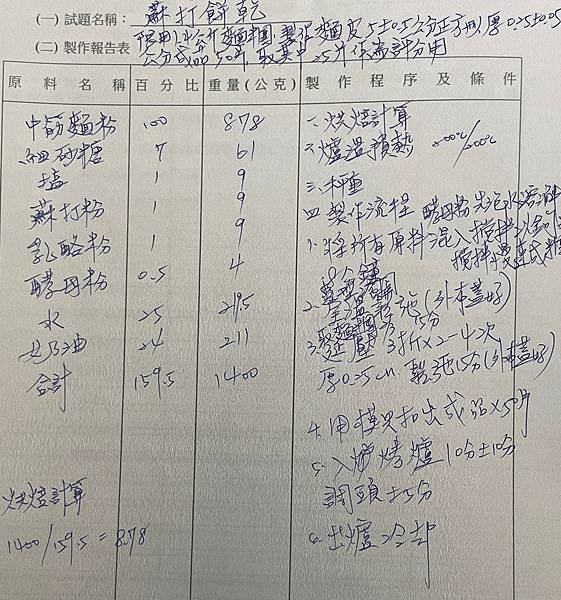 (一) 試題名稱：蘇打餅乾
使用1.4公斤麵糰，製作麵皮5±0.5公分正方形厚0.25±0.05
(二) 製作報告表 公分成品50片，取其中25片作為評分用
原料名稱 百分比 重量(公克) 製作程序及條件
中筋麵粉 100 878
細砂糖 7 61
塩 1 9
蘇打粉 1 9
乳酪粉 1 9
酵母粉 0.5 4
水 25 219.5
白油 24 211
合計 159.5 1400
一、烘焙計算
二、爐溫預熱 200℃/200℃
三、秤種
四、製作流程 酵母粉先泡水溶解
1. 將所有原料混入攪拌缸
攪拌
2. 鬆弛15分(外布蓋好)
3. 延壓 3折×2-4次
厚0.25cm 鬆弛15分(外布蓋好)
4. 用模具扣出成品×50片
5. 入爐烤爐10分±10分
調頭±5分
6. 出爐冷却
烘焙計算
1400/159.5=8.78